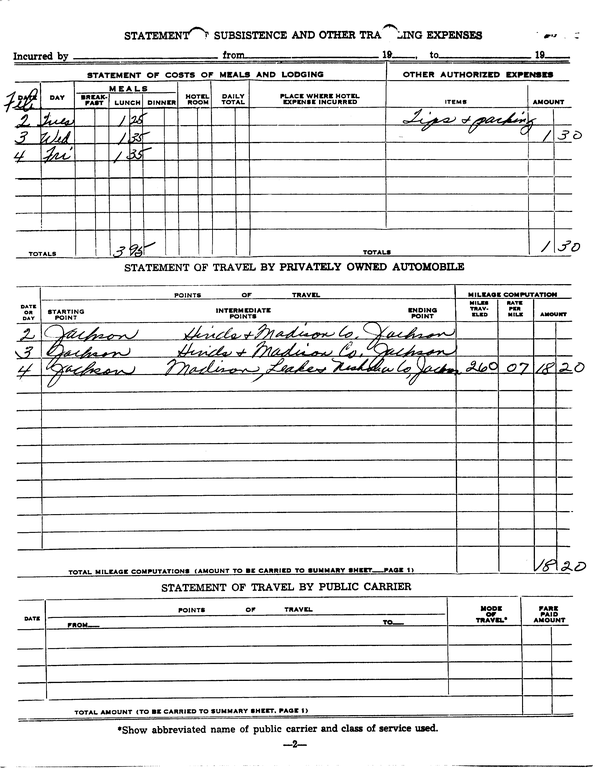 STATEMENT OF SUBSISTENCE AND OTHER TRA LING EXPENSES
Incurred by from 19 , to 19
STATEMENT OF COSTS OF MEALS AND LODGING OTHER AUTHORIZED EXPENSES
Feb
DATE DAY MEALS BREAK-FAST LUNCH DINNER HOTEL ROOM DAILY TOTAL PLACE WHERE HOTEL EXPENSE INCURRED ITEMS AMOUNT
2 Tues 1 25 Tips + parking
3 Wed 1 35 1 30
4 Fri 1 35
TOTALS 3 95 TOTALS 1 30
STATEMENT OF TRAVEL BY PRIVATELY OWNED AUTOMOBILE
POINTS OF TRAVEL MILEAGE COMPUTATION
DATE OR DAY STARTING POINT INTERMEDIATE POINTS ENDING POINT MILES TRAV-ELED RATE PER MILE AMOUNT
2 Jackson Hinds + Madison Co. Jackson
3 Jackson Hinds + Madison Co, Jackson
4 Jackson Madison, Leake + Neshoba Co, Jackson 260 07 18 20
TOTAL MILEAGE COMPUTATIONS (AMOUNT TO BE CARRIED TO SUMMARY SHEET PAGE 1) 18 20
STATEMENT OF TRAVEL BY PUBLIC CARRIER
DATE POINTS OF TRAVEL MODE OF TRAVEL* FARE PAID AMOUNT
FROM TO
TOTAL AMOUNT (TO BE CARRIED TO SUMMARY SHEET, PAGE 1)
*Show abbreviated name of public carrier and class of service used.
—2—